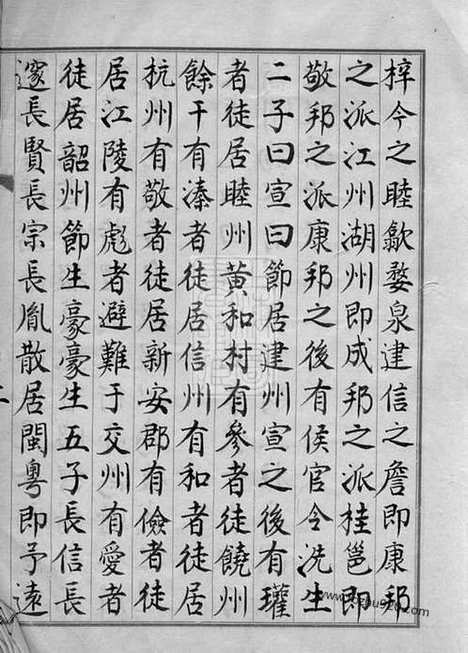 梓今之睦歙婺泉建信之詹即康邦
之派江州湖州即成邦之派桂邕即
敬邦之派康邦之後有侯官令洗生
二子曰宣曰節居建州宣之後有瓘
者徒居睦州黄和村有參者徒饒州
餘干有溱者徒居信州有和者徒居
杭州有敬者徒居新安郡有儉者徒
居江陵有彪者避難于交州有愛者
徒居韶州節生豪豪生五子長信長
邃長賢長宗長胤散居閩粵即予遠